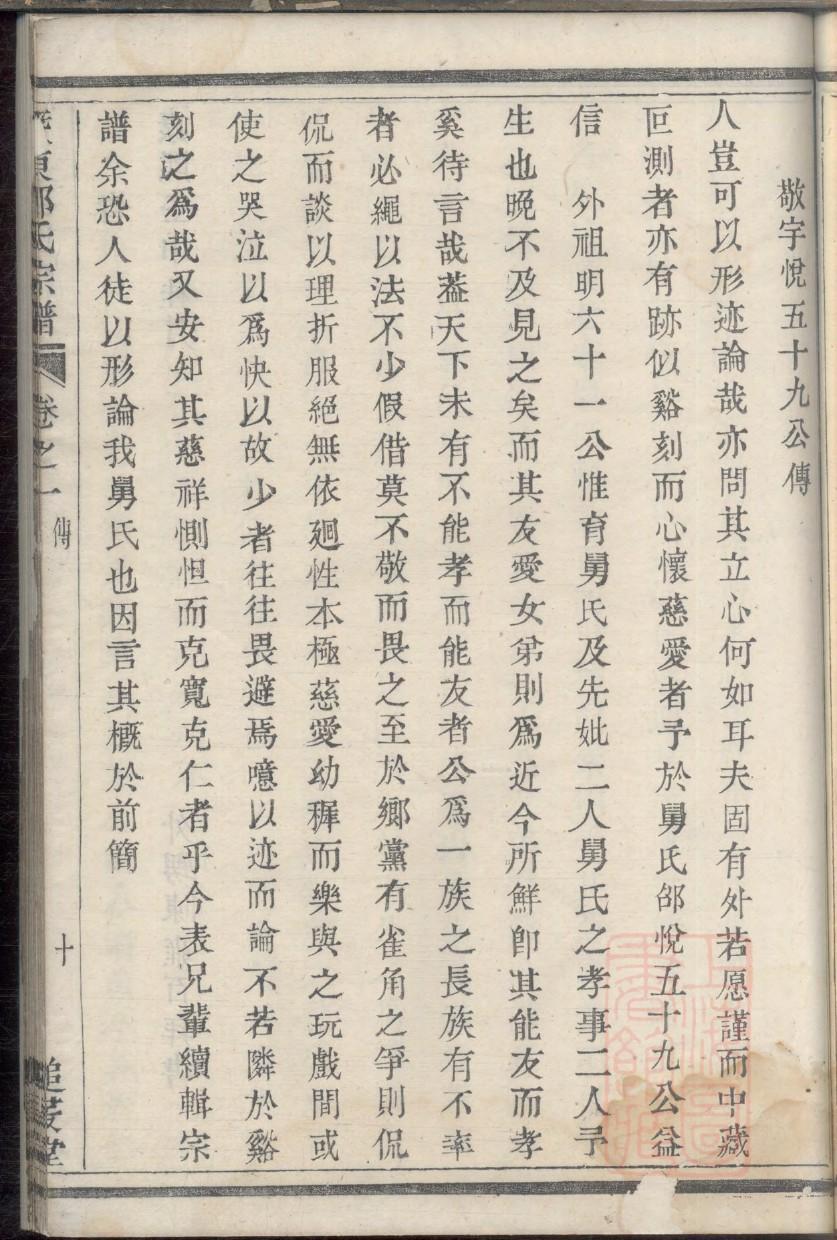 敬宇悅五十九公傳
人豈可以形迹論哉亦問其立心何如耳夫固有外若愿謹而中藏
叵測者亦有跡似谿刻而心懷慈愛者予於舅氏邵悅五十九公益
信　外祖明六十一公惟育舅氏及先妣二人舅氏之孝事二人予
生也晚不及見之矣而其友愛女弟則爲近今所鮮卽其能友而孝
奚待言哉葢天下未有不能孝而能友者公爲一族之長族有不率
者必繩以法不少假借莫不敬而畏之至於鄉黨有雀角之爭則侃
侃而談以理折服絕無依廻性本極慈愛幼穉而樂與之玩戲間或
使之哭泣以爲快以故少者往往畏避焉噫以迹而論不若隣於谿
刻之爲哉又安知其慈祥惻怛而克寬克仁者乎今表兄輩續輯宗
譜余恐人徒以形論我舅氏也因言其概於前簡
東邵氏宗譜
卷之一
傳
十